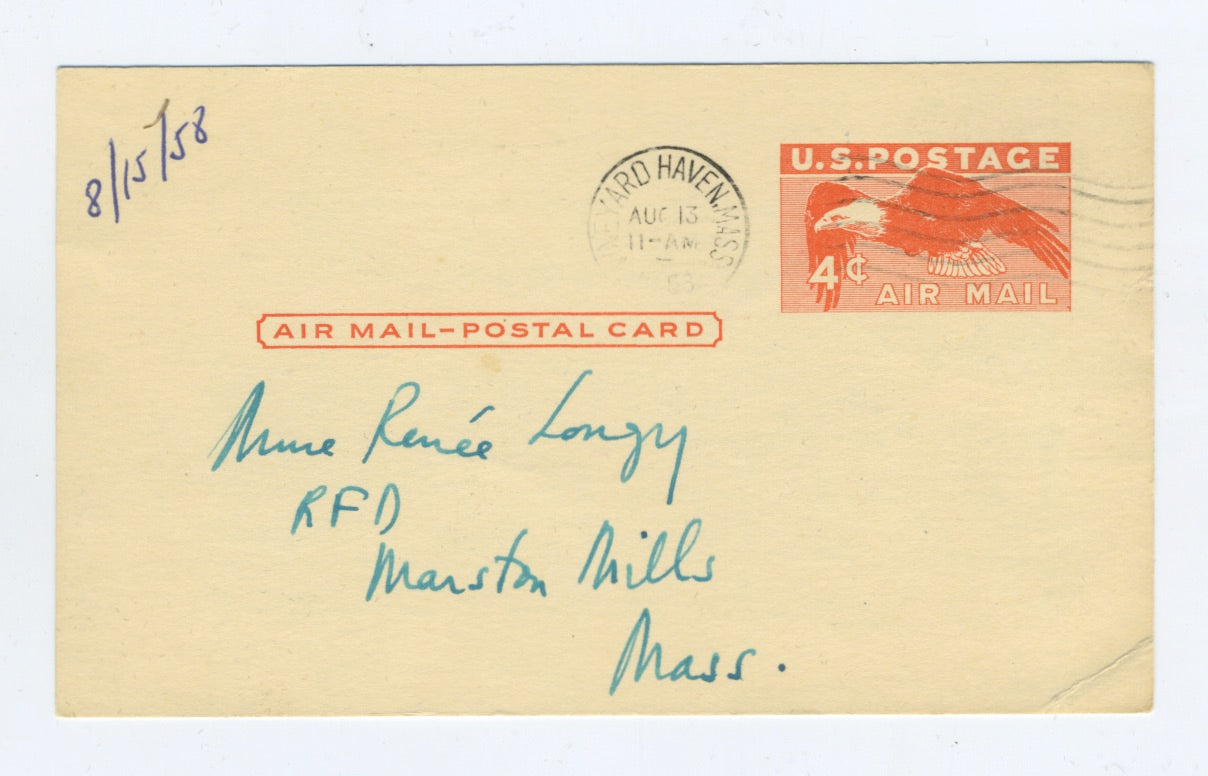 8/15/58
VINEYARD HAVEN, MASS
AUG 13
11-AM
U.S. POSTAGE
4¢
AIR MAIL
AIR MAIL-POSTAL CARD
Anne Renée Longy
RFD
Marston Mills
Mass.